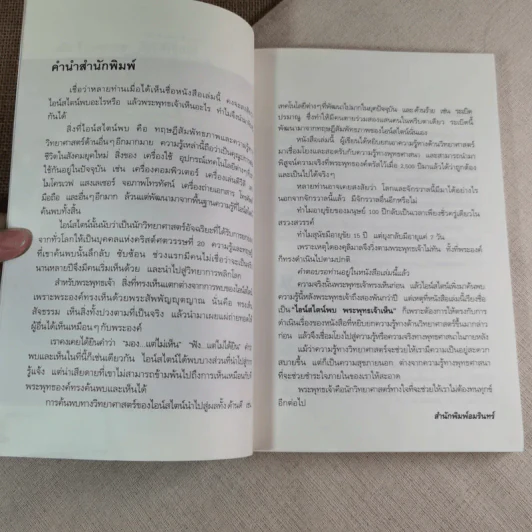 คำนำสำนักพิมพ์
เชื่อว่าหลายท่านเมื่อได้เห็นชื่อหนังสือเล่มนี้ คงสงสัย
ไอน์สไตน์พบอะไรหรือ แล้วพระพุทธเจ้าเห็นอะไร ทำไมจึงนำ
กันได้
สิ่งที่ไอน์สไตน์พบ คือ ทฤษฎีสัมพัทธภาพและความรู้
วิทยาศาสตร์ด้านอื่นๆ อีกมากมาย ความรู้เหล่านี้ถือว่าเป็น
ชีวิตในสังคมยุคใหม่ สิ่งของ เครื่องใช้ อุปกรณ์เทคโนโลยี
ใช้กันอยู่ในปัจจุบัน เช่น เครื่องคอมพิวเตอร์ เครื่องเล่นซีดี
ไมโครเวฟ แสงเลเซอร์ จอภาพโทรทัศน์ เครื่องถ่ายเอกสาร
มือถือ และอื่นๆ อีกมาก ล้วนแต่พัฒนามาจากพื้นฐานความรู้ที่ไอน์สไตน์
ค้นพบทั้งสิ้น
ไอน์สไตน์นั้นนับว่าเป็นนักวิทยาศาสตร์อัจฉริยะที่ได้รับการยกย่อง
จากทั่วโลกให้เป็นบุคคลแห่งคริสต์ศตวรรษที่ 20 ความรู้และทฤษฎี
ที่เขาค้นพบนั้นลึกลับ ซับซ้อน ช่วงแรกมีคนไม่เชื่อว่าจะเป็น
นานหลายปีจึงมีคนเริ่มเห็นด้วย และนำไปสู่วิทยาการพลิกโลก
สำหรับพระพุทธเจ้า สิ่งที่ทรงเห็นแตกต่างจากการพบของไอน์สไตน์
เพราะพระองค์ทรงเห็นด้วยพระสัพพัญญุตญาณ นั่นคือ ทรงเห็น
สัจธรรม เห็นสิ่งทั้งปวงตามที่เป็นจริง แล้วนำมาเผยแผ่ถ่ายทอดให้
ผู้อื่นได้เห็นเหมือนๆ กับพระองค์
เราคงเคยได้ยินคำว่า "มอง...แต่ไม่เห็น" "ฟัง...แต่ไม่ได้ยิน"
พบและเห็นในที่นี้ก็เช่นเดียวกัน ไอน์สไตน์ได้พบบางส่วนที่นำไปสู่การ
รู้แจ้ง แต่น่าเสียดายที่เขาไม่สามารถข้ามพ้นไปถึงการเห็นเหมือนกับที่
พระพุทธองค์ทรงค้นพบและเห็นได้
การค้นพบทางวิทยาศาสตร์ของไอน์สไตน์นำไปสู่ผลทั้งด้านดี เช่น
เทคโนโลยีต่างๆ ที่พัฒนาไปมากในยุคปัจจุบัน และด้านร้าย เช่น ระเบิด
ปรมาณู ซึ่งทำให้มีคนตายรวมสองแสนคนในพริบตาเดียว ระเบิดนี้
พัฒนามาจากทฤษฎีสัมพัทธภาพของไอน์สไตน์นั่นเอง
หนังสือเล่มนี้ ผู้เขียนได้หยิบยกความรู้ทางด้านวิทยาศาสตร์
มาเชื่อมโยงและสอดรับกับความรู้ทางพุทธศาสนา และสามารถนำมา
พิสูจน์ความจริงที่พระพุทธองค์ตรัสไว้เมื่อ 2,500 ปีมาแล้วได้ว่าถูกต้อง
และเป็นไปได้จริงๆ
หลายท่านอาจเคยสงสัยว่า โลกและจักรวาลนี้มีมาได้อย่างไร
นอกจากจักรวาลนี้แล้ว มีจักรวาลอื่นอีกหรือไม่
ทำไมอายุขัยของมนุษย์ 100 ปีกลับเป็นเวลาเพียงชั่วครู่เดียวใน
สรวงสวรรค์
ทำไมสุนัขมีอายุขัย 15 ปี แต่ยุงกลับมีอายุแค่ 7 วัน
เพราะเหตุใดองคุลิมาลจึงวิ่งตามพระพุทธเจ้าไม่ทัน ทั้งที่พระองค์
ก็ทรงดำเนินไปตามปกติ
คำตอบรอท่านอยู่ในหนังสือเล่มนี้แล้ว
ความจริงนั้นพระพุทธเจ้าทรงเห็นก่อน แล้วไอน์สไตน์เพิ่งมาค้นพบ
ความรู้นี้หลังพระพุทธเจ้าถึงสองพันกว่าปี แต่เหตุที่หนังสือเล่มนี้เรียงชื่อ
เป็น "ไอน์สไตน์พบ พระพุทธเจ้าเห็น" ก็เพราะต้องการให้ตรงกับการ
ดำเนินเรื่องของหนังสือที่หยิบยกความรู้ทางด้านวิทยาศาสตร์ขึ้นมากล่าว
ก่อน แล้วจึงเชื่อมโยงไปสู่ความรู้หรือความจริงทางพุทธศาสนาในภายหลัง
แม้ว่าความรู้ทางวิทยาศาสตร์จะช่วยให้เรามีความเป็นอยู่สะดวก
สบายขึ้น แต่ก็เป็นความสุขภายนอก ต่างจากความรู้ทางพุทธศาสตร์
ที่จะช่วยชำระใจภายในของเราให้สะอาด
พระพุทธเจ้าคือนักวิทยาศาสตร์ทางใจที่จะช่วยให้เราไม่ต้องทนทุกข์
อีกต่อไป
สำนักพิมพ์อมรินทร์